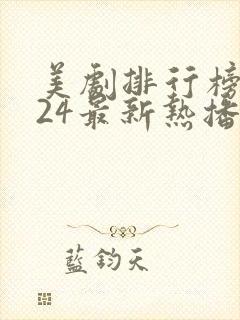 美劇排行榜
24最新熱播
藍鈞天